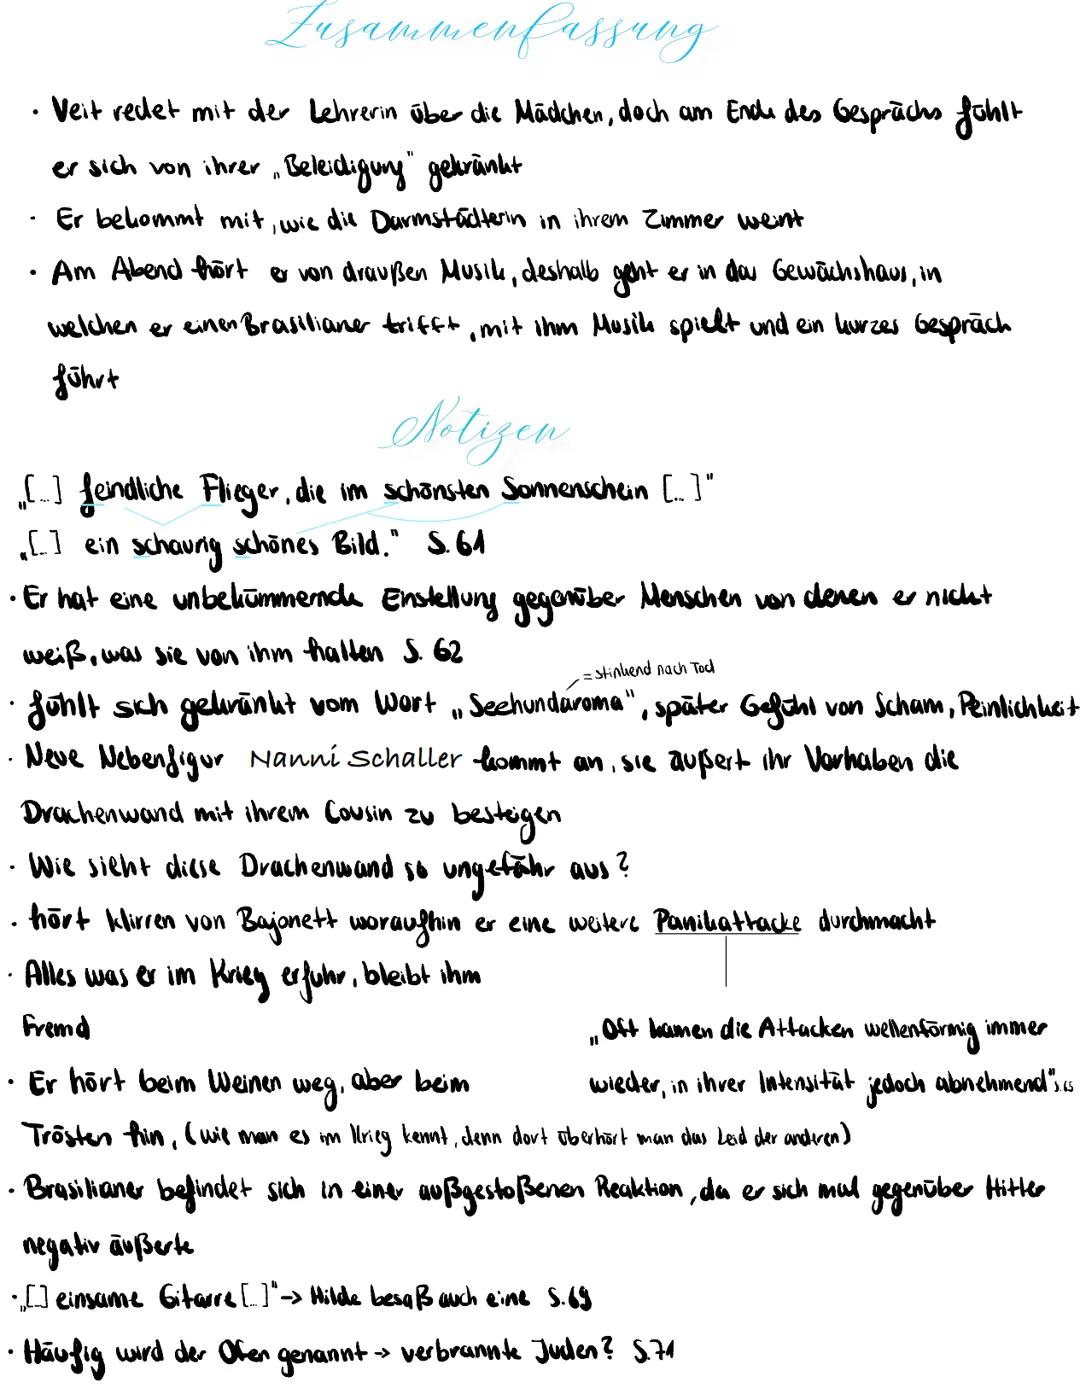 Zusammenfassung
· Veit redet mit der Lehrerin über die Mädchen, doch am Ende des Gesprächs fühlt
er sich von ihrer „Beleidigung" gekränkt
· Er bekommt mit, wie die Darmstädterin in ihrem Zimmer weint
· Am Abend hört er von draußen Musik, deshalb geht er in das Gewächshaus, in
welchen er einen Brasilianer trifft, mit ihm Musik spielt und ein kurzes Gespräch
führt
Notizen
„[...] feindliche Flieger, die im schönsten Sonnenschein [...]"
„[...] ein schaurig schönes Bild." S. 61
· Er hat eine unbekümmernde Einstellung gegenüber Menschen von denen er nicht
weiß, was sie von ihm halten S. 62
= stinkend nach Tod
· fühlt sich gekränkt vom Wort „Seehundaroma", später Gefühl von Scham, Peinlichkeit
· Neue Nebenfigur Nanni Schaller kommt an, sie äußert ihr Vorhaben die
Drachenwand mit ihrem Cousin zu besteigen
· Wie sieht diese Drachenwand so ungefähr aus?
· hört klirren von Bajonett woraufhin er eine weitere Panikattacke durchmacht
· Alles was er im Krieg erfuhr, bleibt ihm
Fremd
„Oft kamen die Attacken wellenförmig immer
· Er hört beim Weinen weg, aber beim
wieder, in ihrer Intensität jedoch abnehmend" S.65
Trösten hin, (wie man es im Krieg kennt, denn dort überhört man das Leid der anderen)
· Brasilianer befindet sich in einer außgestoßenen Reaktion, da er sich mal gegenüber Hitler
negativ äußerte
· „[...] einsame Gitarre [...]" → Hilde besaß auch eine S. 69
· Häufig wird der Ofen genannt → verbrannte Juden? S. 71